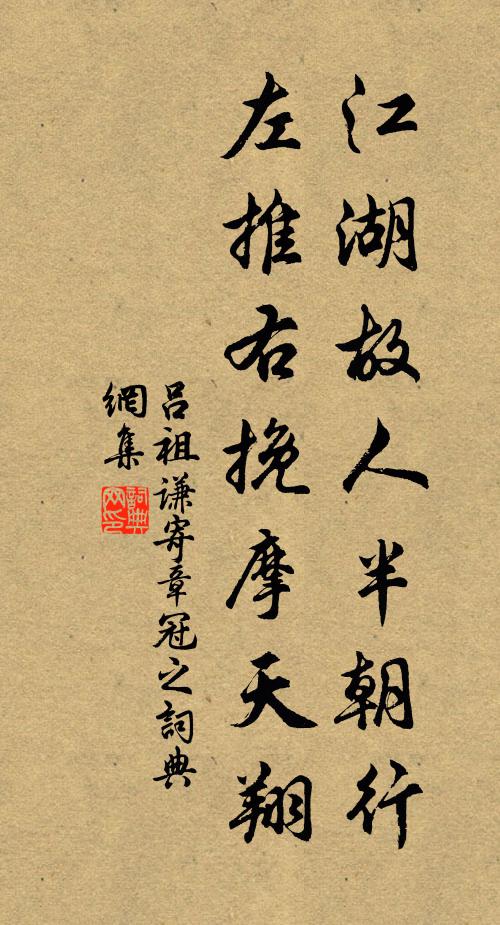 江湖故人半朝行
左推右挽摩天翔
呂祖謙寄章冠之詞典
網集
詞典網印